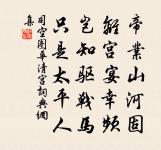 帝業山河固
離宮宴幸頻
豈知驅戰馬
只是太平人
司空圖華清宮詞典網
集